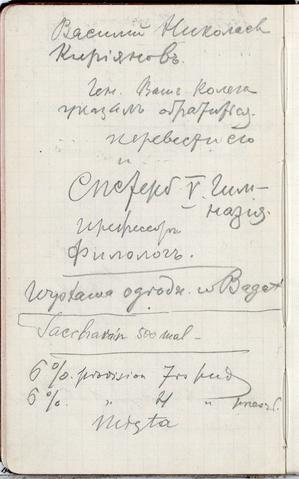 Василий Николаев
Кирiяновъ.
Ген. Ваше Колега
указалъ обратится.
перевести сю
и
Спетерб V. Гим-
назiя.
профессоръ
Филологъ.
Wystawa ogrodn. w Bagat
Saccharin 500 mal -
6%. provision 7rs pud
6%. " 21 "
Mięta